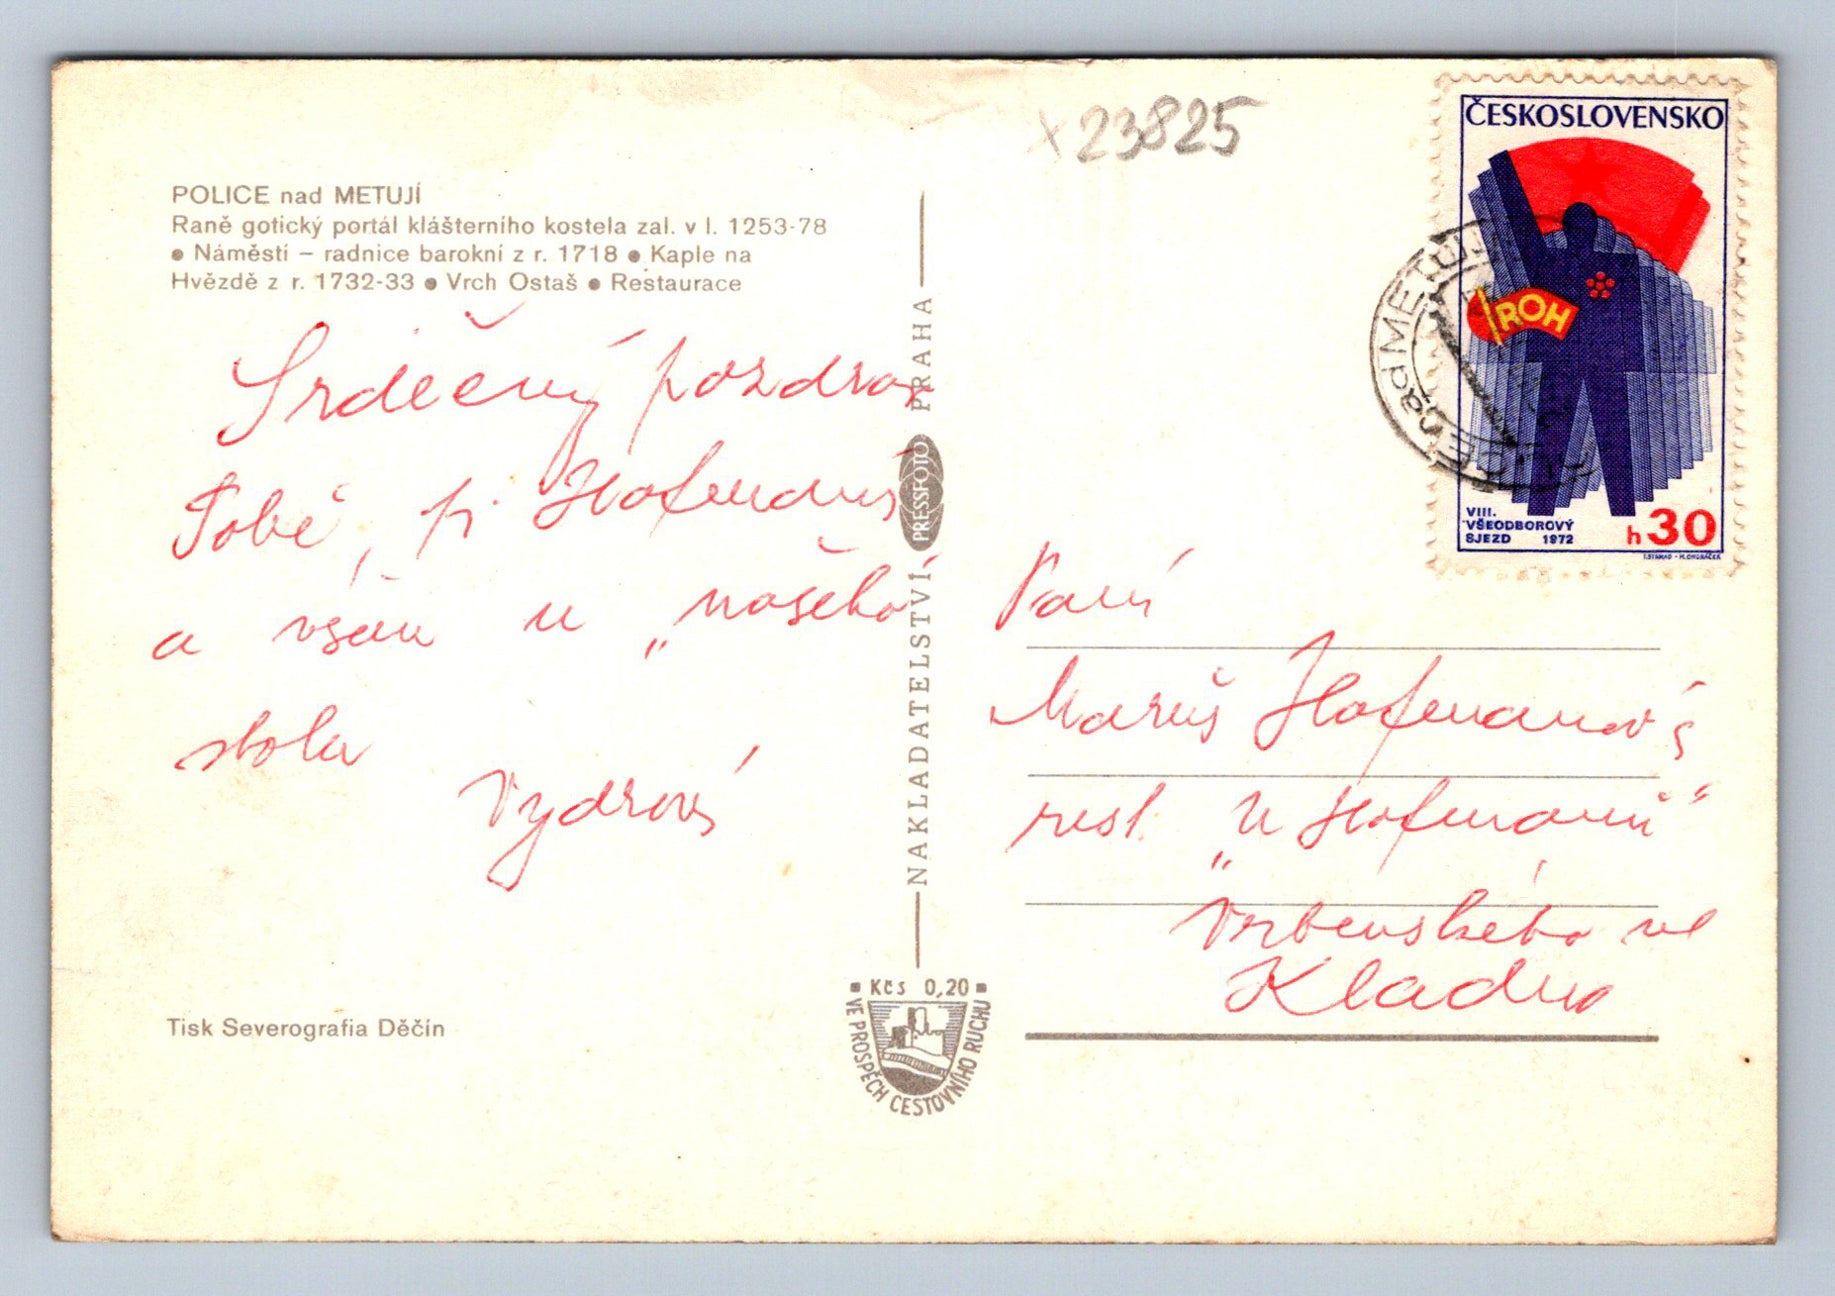 x23825
POLICE nad METUJÍ
Raně gotický portál klášterního kostela zal. v l. 1253-78
● Náměstí – radnice barokní z r. 1718 ● Kaple na
Hvězdě z r. 1732-33 ● Vrch Ostaš ● Restaurace
Srdečný pozdrav
Tobě, pí Hofmanové
a všem u „našeho
stolu
Vydrová
Tisk Severografia Děčín
NAKLADATELSTVÍ PRESSFOTO PRAHA
Kčs 0,20
VE PROSPĚCH CESTOVNÍHO RUCHU
ČESKOSLOVENSKO
ROH
VIII.
VŠEODBOROVÝ
SJEZD 1972
h30
nad METUJÍ
Paní
Hofmanová
rest. „U Hofmanů“
Vrbenského ul
Kladno